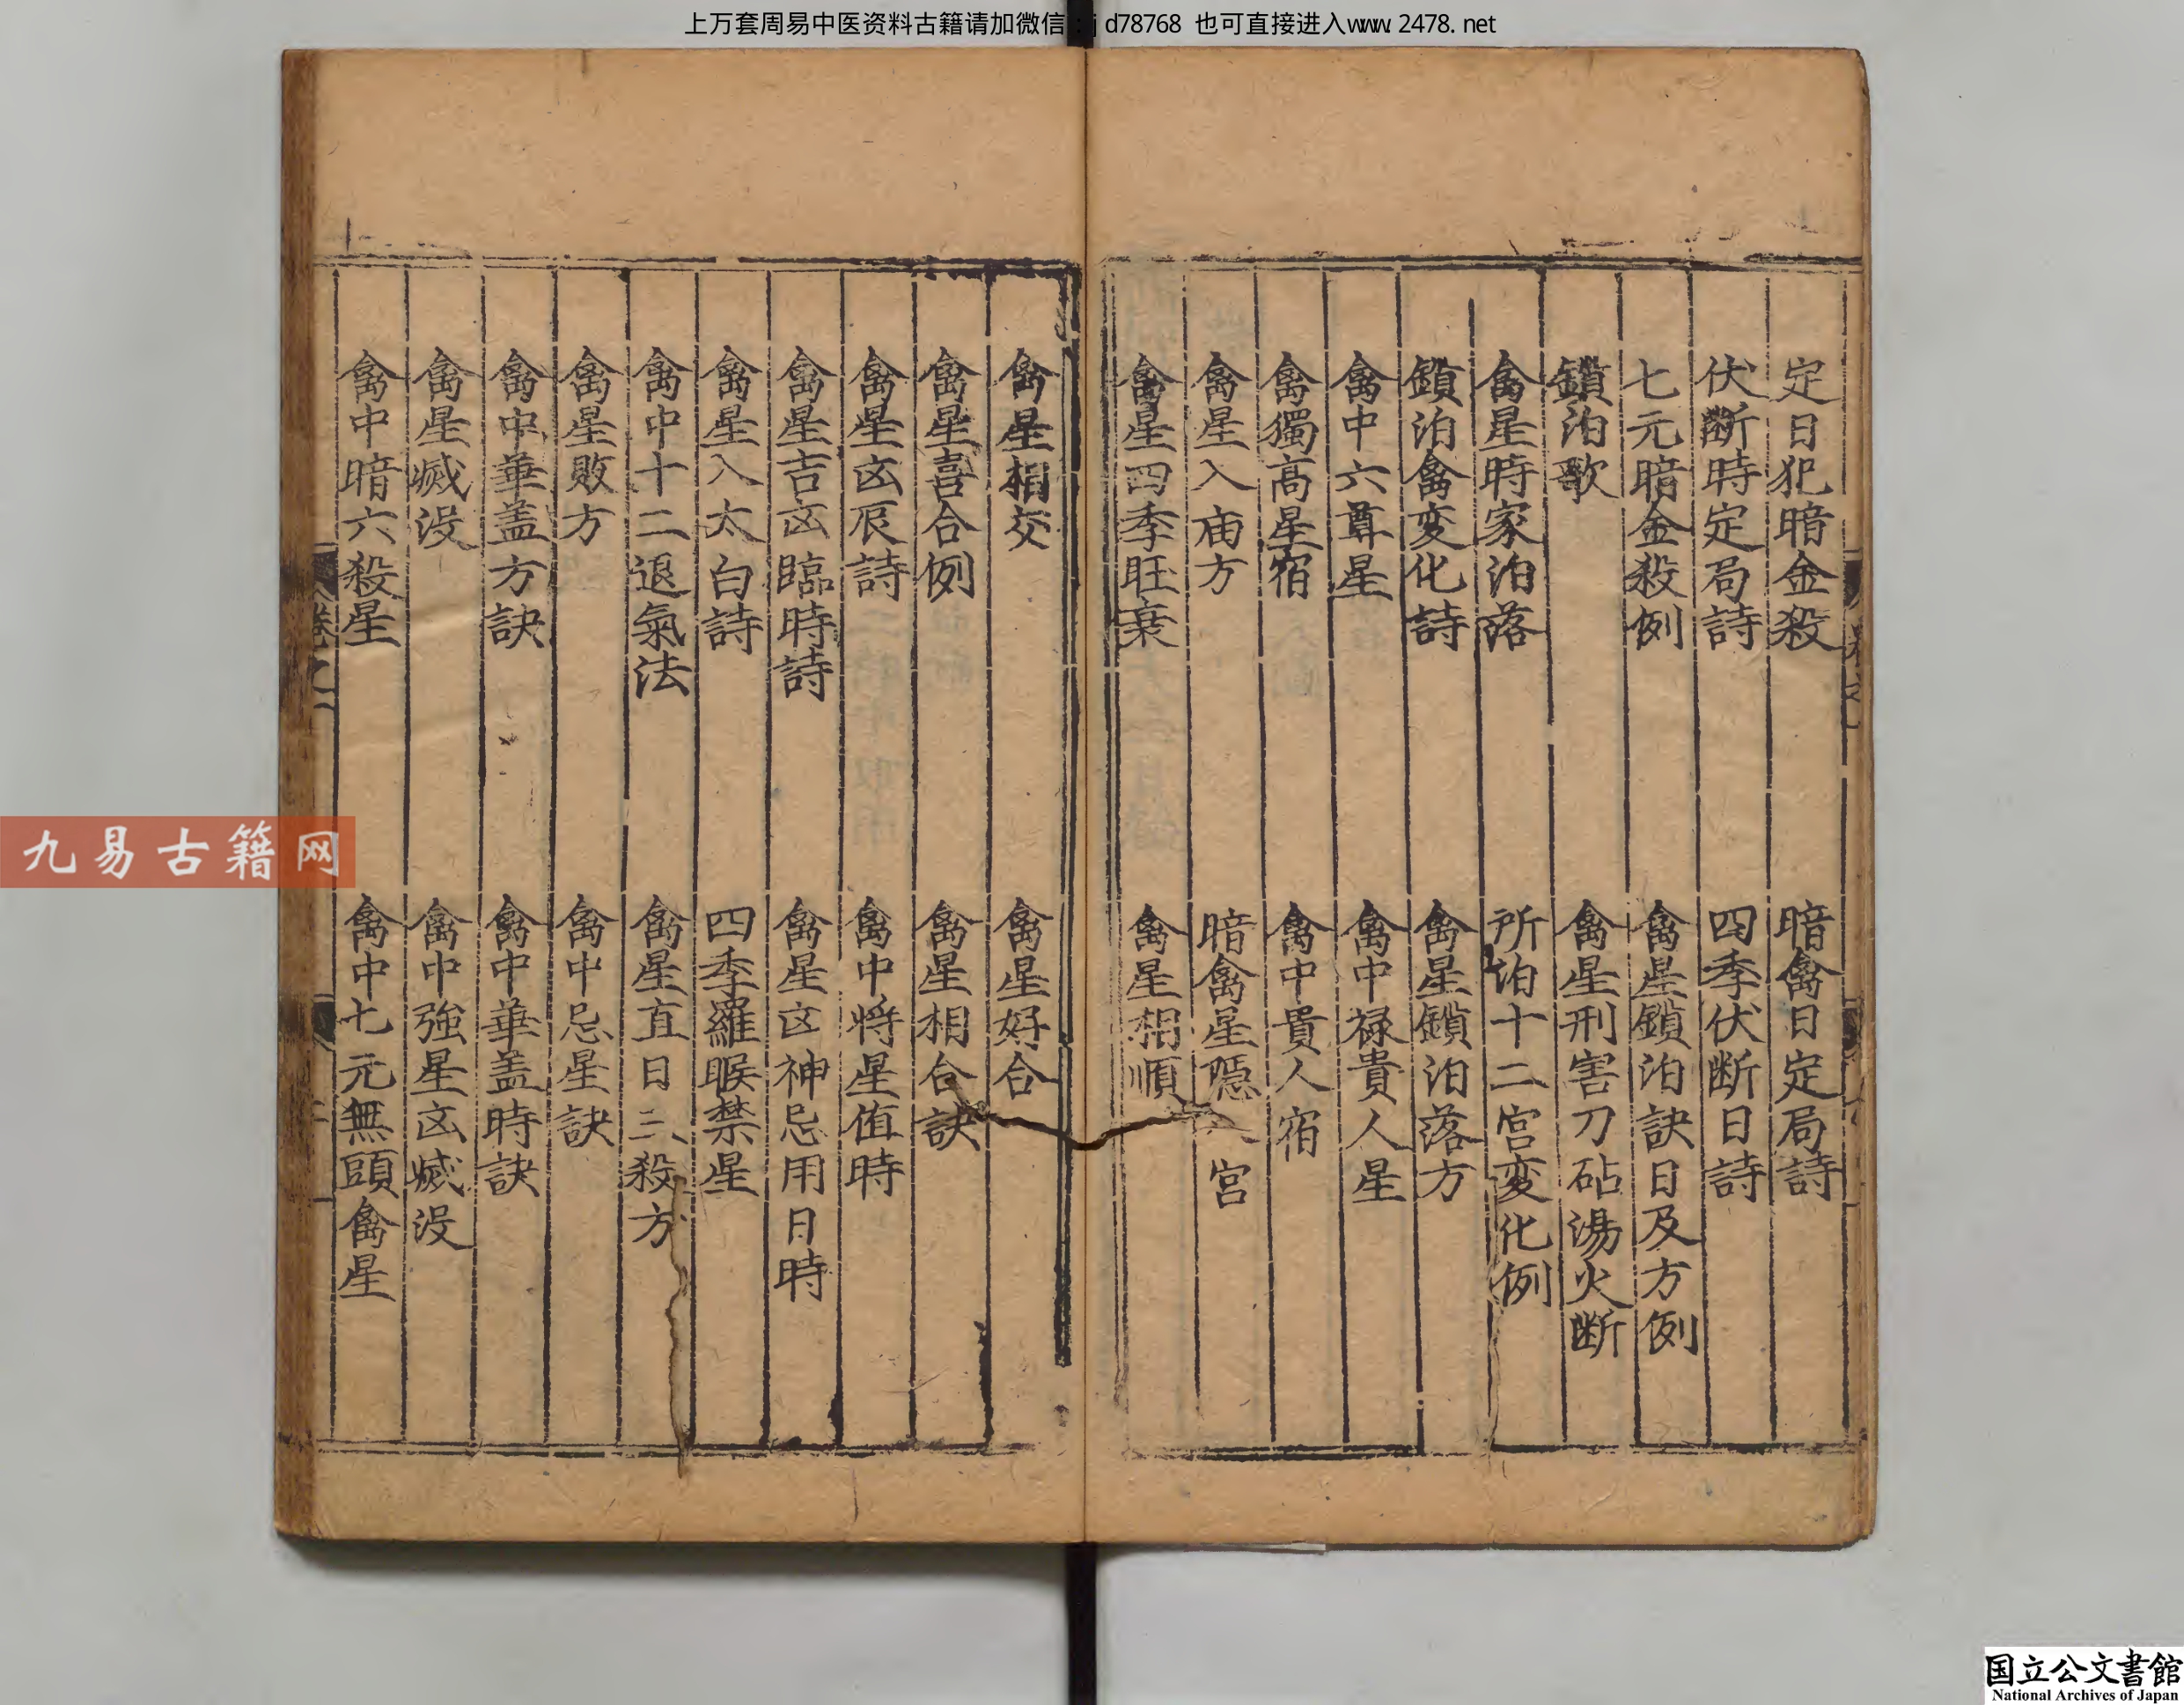 上万套周易中医资料古籍请加微信：jd78768 也可直接进入www.2478.net
定日犯暗金殺
暗禽日定局詩
伏断時定局詩
四季伏断日詩
七元暗金殺例
禽星鎖泊訣日及方例
鎖泊歌
禽星刑害刀砧湯火断
禽星時家泊落
所泊十二宮変化例
鎖泊禽変化詩
禽星鎖泊落方
禽中六尊星
禽中禄貴人星
禽獨高星宿
禽中貴人宿
禽星入庙方
暗禽星隠八宮
禽星四季旺衰
禽星相順
禽星相交
禽星好合
禽星喜合例
禽星相合訣
禽星㐫辰詩
禽中将星值時
禽星吉㐫臨時詩
禽星㐫神忌用日時
禽星入太白詩
四季羅睺禁星
禽中十二退氣法
禽星直日三殺方
禽星敗方
禽中忌星訣
禽中華盖方訣
禽中華盖時訣
禽星滅没
禽中強星㐫滅没
禽中暗六殺星
禽中七元無頭禽星
卷之一
九易古籍网
国立公文書館
National Archives of Japan